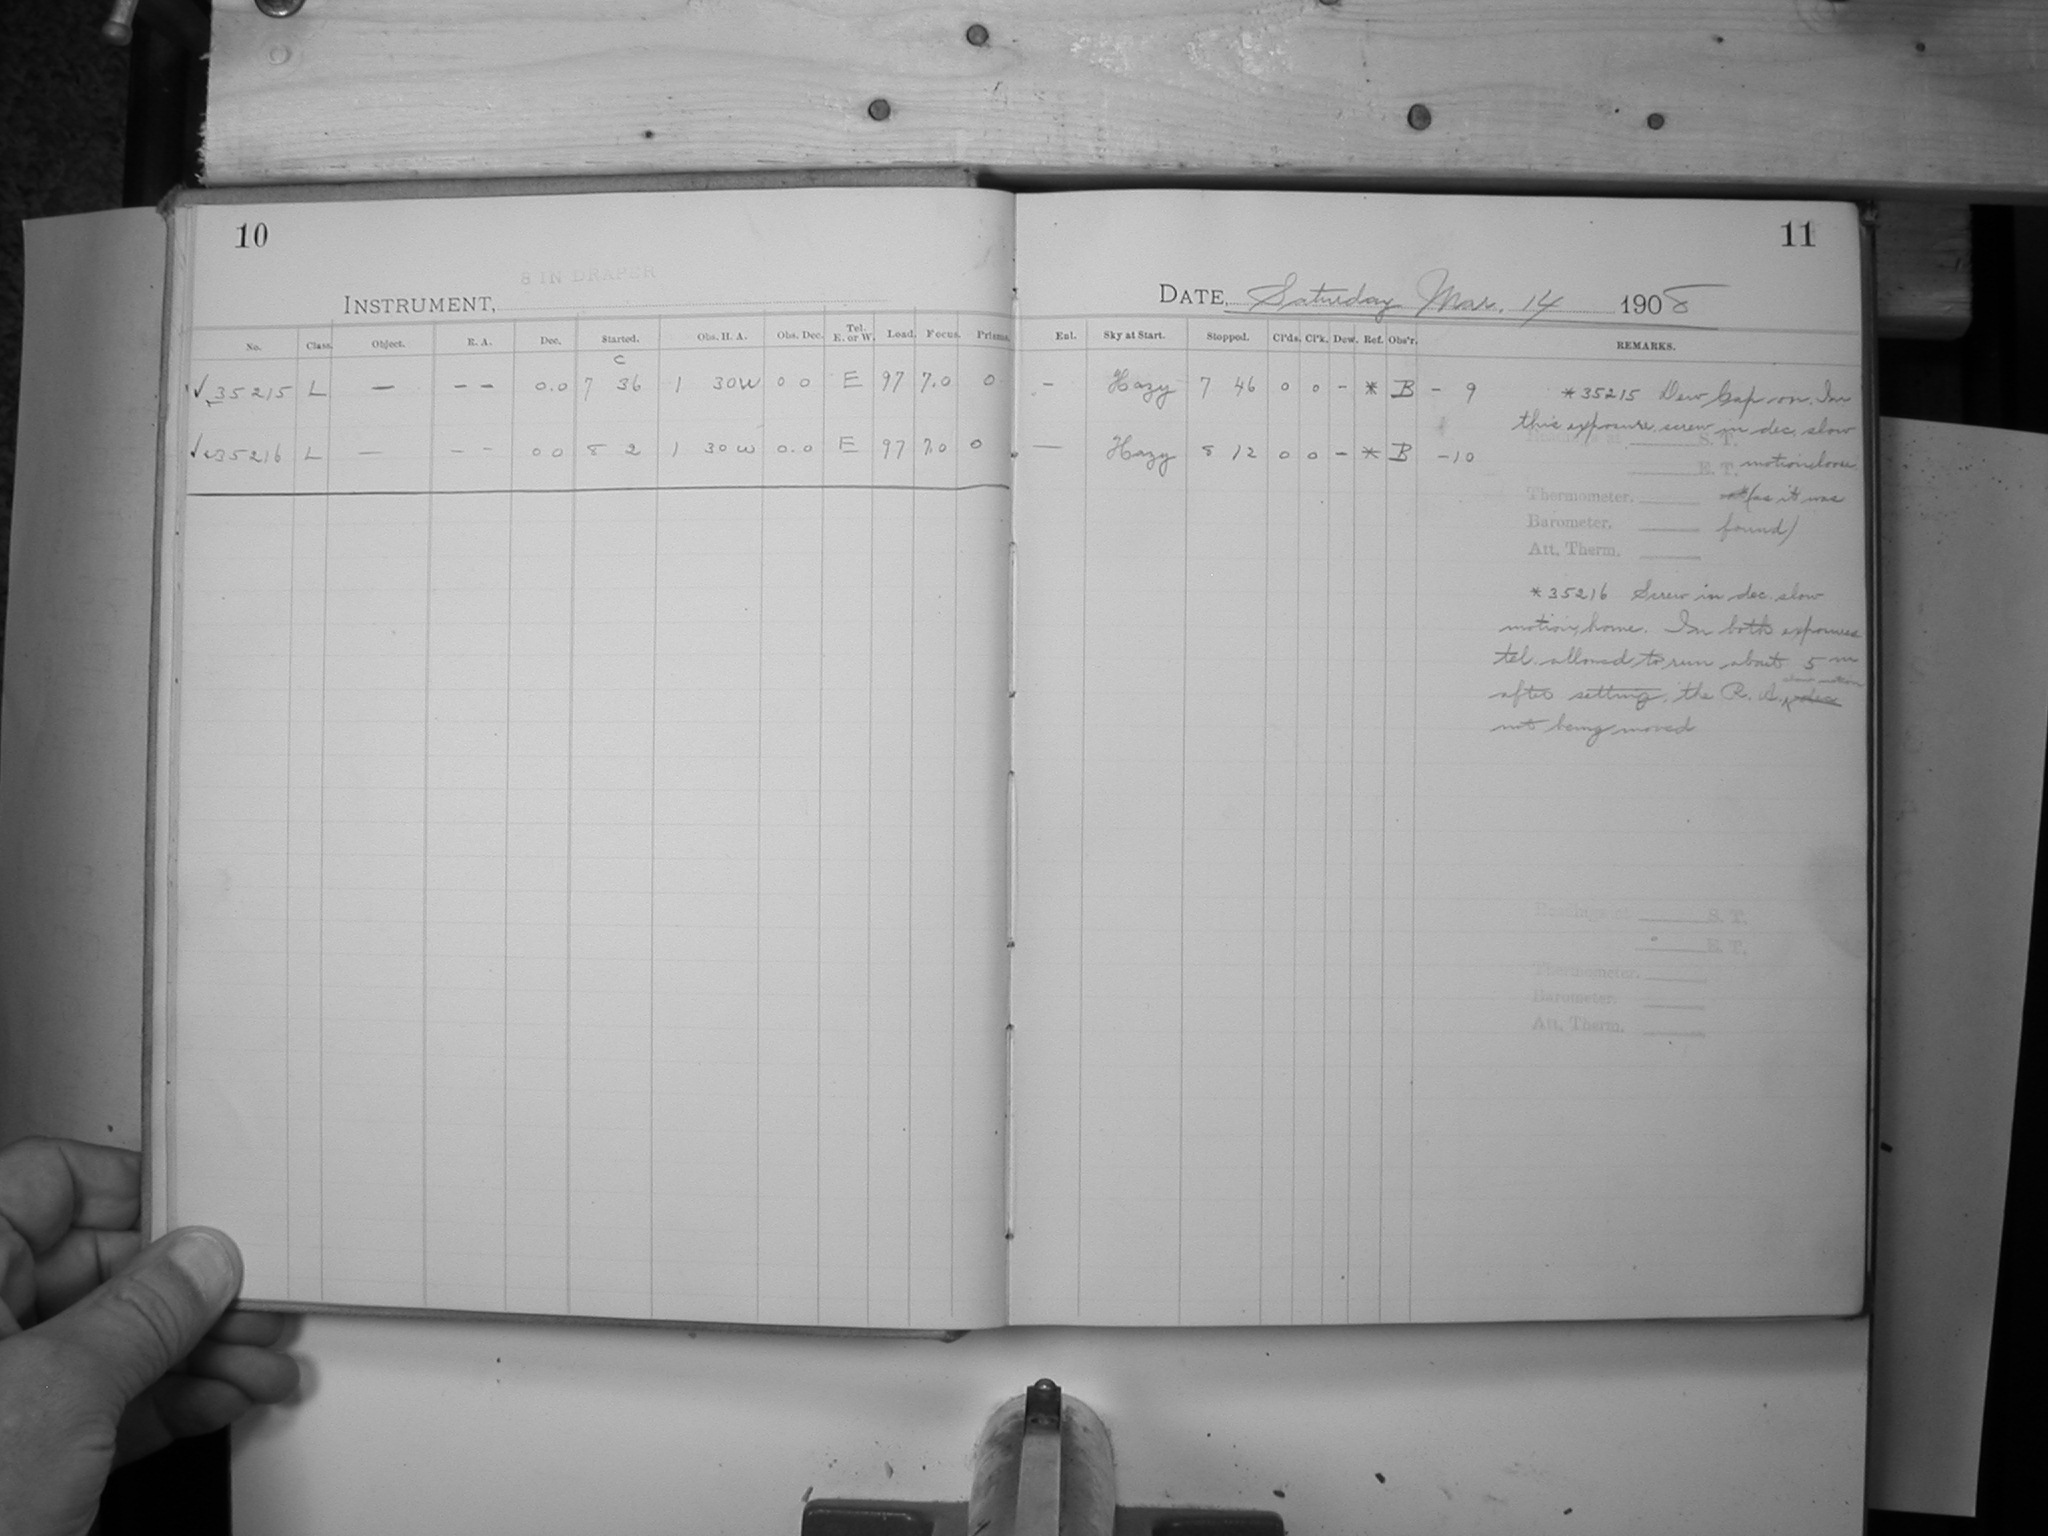 10
8 IN DRAPER
INSTRUMENT,
No. Class. Object. R. A. Dec. Started. Obs. H. A. Obs. Dec. Tel. E. or W. Lead. Focus. Prisms.
c
✓ 35215 L — – – 0.0 7 36 1 30W 0 0 E 97 7.0 0
✓ 35216 L — – – 0 0 8 2 1 30W 0.0 E 97 7.0 0
11
DATE, Saturday Mar. 14 1908
Enl. Sky at Start. Stopped. Cl'ds. Cl'k. Dew. Ref. Obs'r. REMARKS.
– Hazy 7 46 0 0 – * B – 9
— Hazy 8 12 0 0 – * B –10
*35215 Dew Cap on. In
this exposure screw in dec. slow
motion loose
(as it was
found)
Readings at S. T.
E. T.
Thermometer.
Barometer.
Att. Therm.
*35216 Screw in dec. slow
motion, home. In both exposures
tel. allowed to run about 5 m
after setting, the R. A. slow motion
not being moved
Readings at S. T.
E. T.
Thermometer.
Barometer.
Att. Therm.